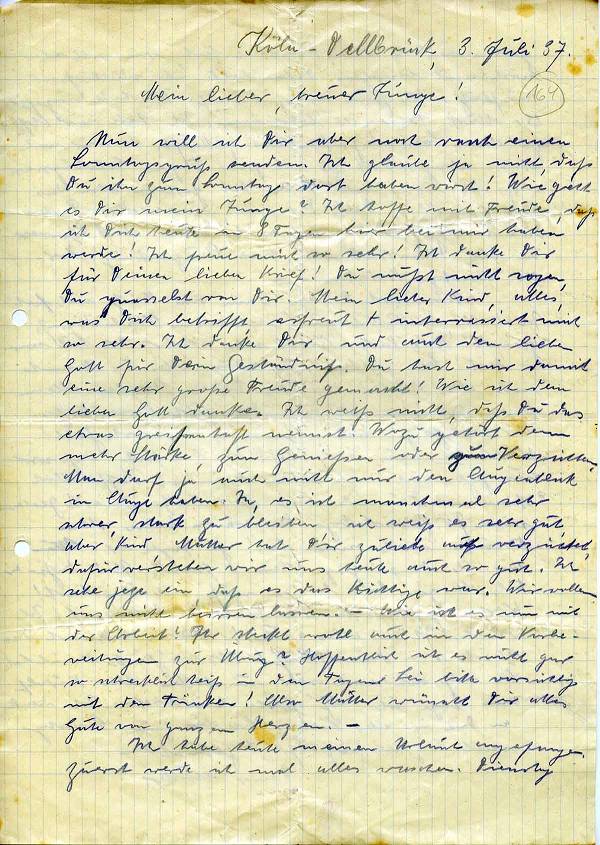 Köln-Dellbrück, 3. Juli 37.
164
Mein lieber, treuer Junge!
Nun will ich Dir aber noch rasch einen
Sonntagsgruß senden. Ich glaube ja nicht, daß
Du ihn zum Sonntag dort haben wirst! Wie geht
es Dir mein Junge? Ich hoffe mit Freude, daß
ich Dich heute in 8 Tagen hier bei mir haben
werde! Ich freue mich so sehr! Ich danke Dir
für Deinen lieben Brief! Du mußt nicht sagen,
Du quasselst von Dir. Mein lieber Kind, alles,
was Dich betrifft, erfreut + interessiert mich
so sehr. Ich danke Dir und auch dem lieben
Gott für Dein Geständniß. Du hast mir damit
eine sehr große Freude gemacht! Wie ich dem
lieben Gott danke. Ich weiß nicht, daß Du das
etwas meinst! Wozu gehört denn
mehr Stärke, zum Genießen oder zum Verzichten.
Man darf ja auch nicht nur den Augenblick
im Auge haben. Ja, es ist manchmal sehr
schwer, stark zu bleiben ich weiß es sehr gut
aber, Kind Mutter hat Dir zuliebe auch verzichtet,
dafür verstehen wir uns heute auch so gut. Ich
sehe jetzt ein, daß es das Richtige war. Wir wollen
uns nicht beirren lassen. – Wie ist es nun mit
der Arbeit! Ihr steckt wohl auch in den Vorbe-
reitungen zur Übung? Hoffentlich ist es nicht gar
so schrecklich heiß in den Tagen. Sei bitte vorsichtig
mit dem Trinken! Also Mutter wünscht Dir alles
Gute von ganzem Herzen. –
Ich habe heute meinen Urlaub angefangen.
Zuerst werde ich mal alles waschen. Dienstag